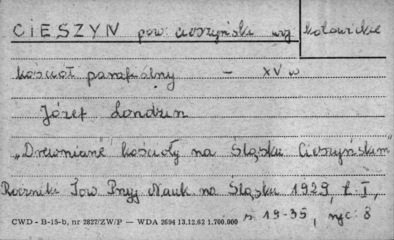 CIESZYN pow. cieszyński woj. katowickie
kościół parafialny – XV w
Józef Londzin
„Drewniane kościoły na Śląsku Cieszyńskim"
Rocznik Tow Przyj Nauk na Śląsku 1929, t. I,
s. 19-35, ryc. 8
CWD - B-15-b, nr 2827/ZW/P — WDA 2694 13.12.62 1.700.000